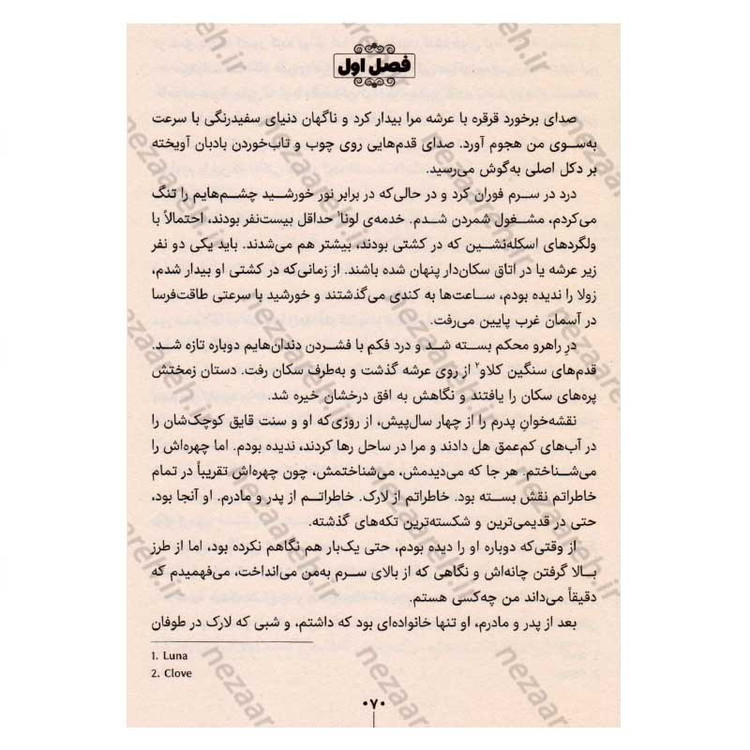 فصل اول
صدای برخورد قرقره با عرشه مرا بیدار کرد و ناگهان دنیای سفیدرنگی با سرعت
به‌سوی من هجوم آورد. صدای قدم‌هایی روی چوب و تاب‌خوردن بادبان آویخته
بر دکل اصلی به‌گوش می‌رسید.
درد در سرم فوران کرد و در حالی‌که در برابر نور خورشید چشم‌هایم را تنگ
می‌کردم، مشغول شمردن شدم. خدمه‌ی لونا¹ حداقل بیست‌نفر بودند، احتمالاً با
ولگردهای اسکله‌نشین که در کشتی بودند، بیشتر هم می‌شدند. باید یکی دو نفر
زیر عرشه یا در اتاق سکان‌دار پنهان شده باشند. از زمانی‌که در کشتی او بیدار شدم،
زولا را ندیده بودم، ساعت‌ها به کندی می‌گذشتند و خورشید با سرعتی طاقت‌فرسا
در آسمان غرب پایین می‌رفت.
درِ راهرو محکم بسته شد و درد فکم با فشردن دندان‌هایم دوباره تازه شد.
قدم‌های سنگین کلاو² از روی عرشه گذشت و به‌طرف سکان رفت. دستان زمختش
پره‌های سکان را یافتند و نگاهش به افق درخشان خیره شد.
نقشه‌خوانِ پدرم را از چهار سال‌پیش، از روزی‌که او و سنت قایق کوچک‌شان را
در آب‌های کم‌عمق هل دادند و مرا در ساحل رها کردند، ندیده بودم. اما چهره‌اش را
می‌شناختم. هر جا که می‌دیدمش، می‌شناختمش، چون چهره‌اش تقریباً در تمام
خاطراتم نقش بسته بود. خاطراتم از لارک. خاطراتم از پدر و مادرم. او آنجا بود،
حتی در قدیمی‌ترین و شکسته‌ترین تکه‌های گذشته.
از وقتی‌که دوباره او را دیده بودم، حتی یک‌بار هم نگاهم نکرده بود، اما از طرز
بالا گرفتن چانه‌اش و نگاهی که از بالای سرم به‌من می‌انداخت، می‌فهمیدم که
دقیقاً می‌داند من چه‌کسی هستم.
بعد از پدر و مادرم، او تنها خانواده‌ای بود که داشتم، و شبی که لارک در طوفان
1. Luna
2. Clove
۰۷۰
nezaareh.ir